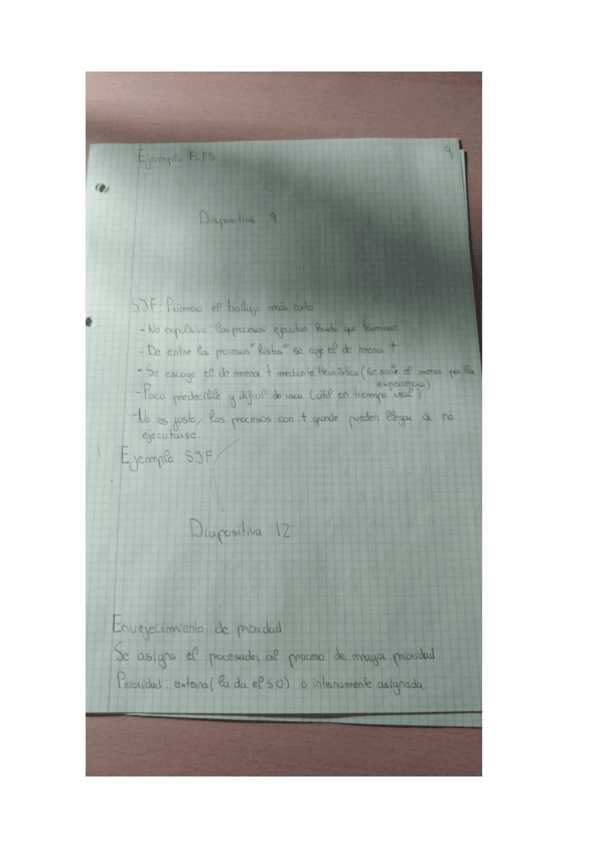 Ejemplo FCFS
9
Diapositiva 9
SJF: Primero el trabajo más corto
- No expulsivo: los procesos ejecutan hasta que terminan
- De entre los procesos "listos" se coge el de menor t
- Se escoge el de menor t mediante Heurística (se sabe el menor por la experiencia)
- Poco predecible y difícil de usar (útil en tiempo real)
- No es justo, los procesos con t grande pueden llegar a no
ejecutarse.
Ejemplo SJF
Diapositiva 12
Envejecimiento de prioridad
Se asigna el procesador al proceso de mayor prioridad
Prioridad: externa (la da el SO) o internamente asignada